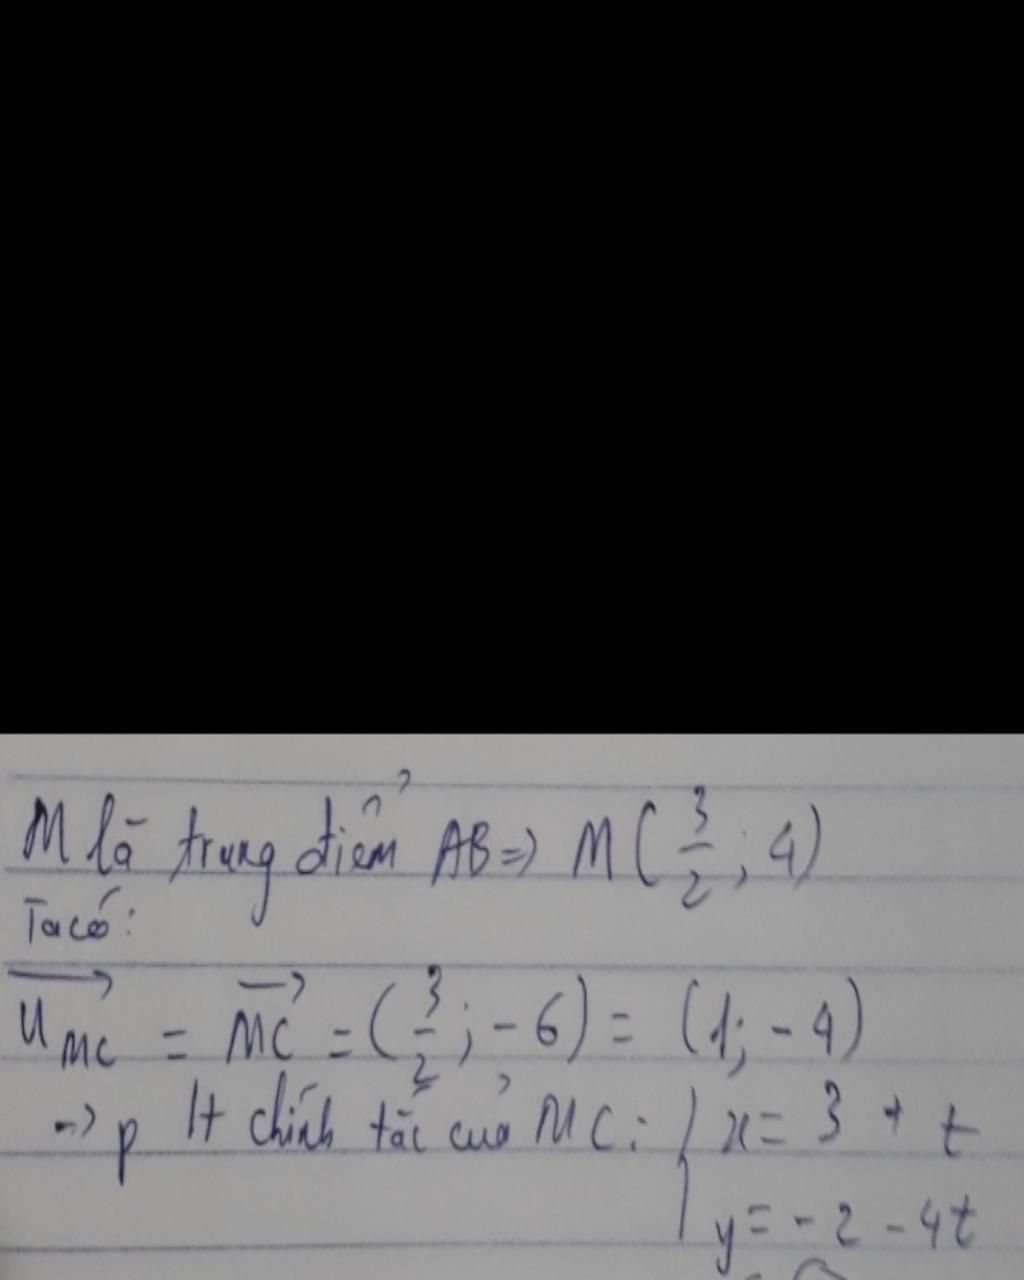 M là trung điểm AB => M ( 3/2 ; 4)
Ta có:
u MC = MC = ( 3/2 ; - 6 ) = (1; - 4)
-> p lt chính tắc của MC: { x = 3 + t
y = - 2 - 4t